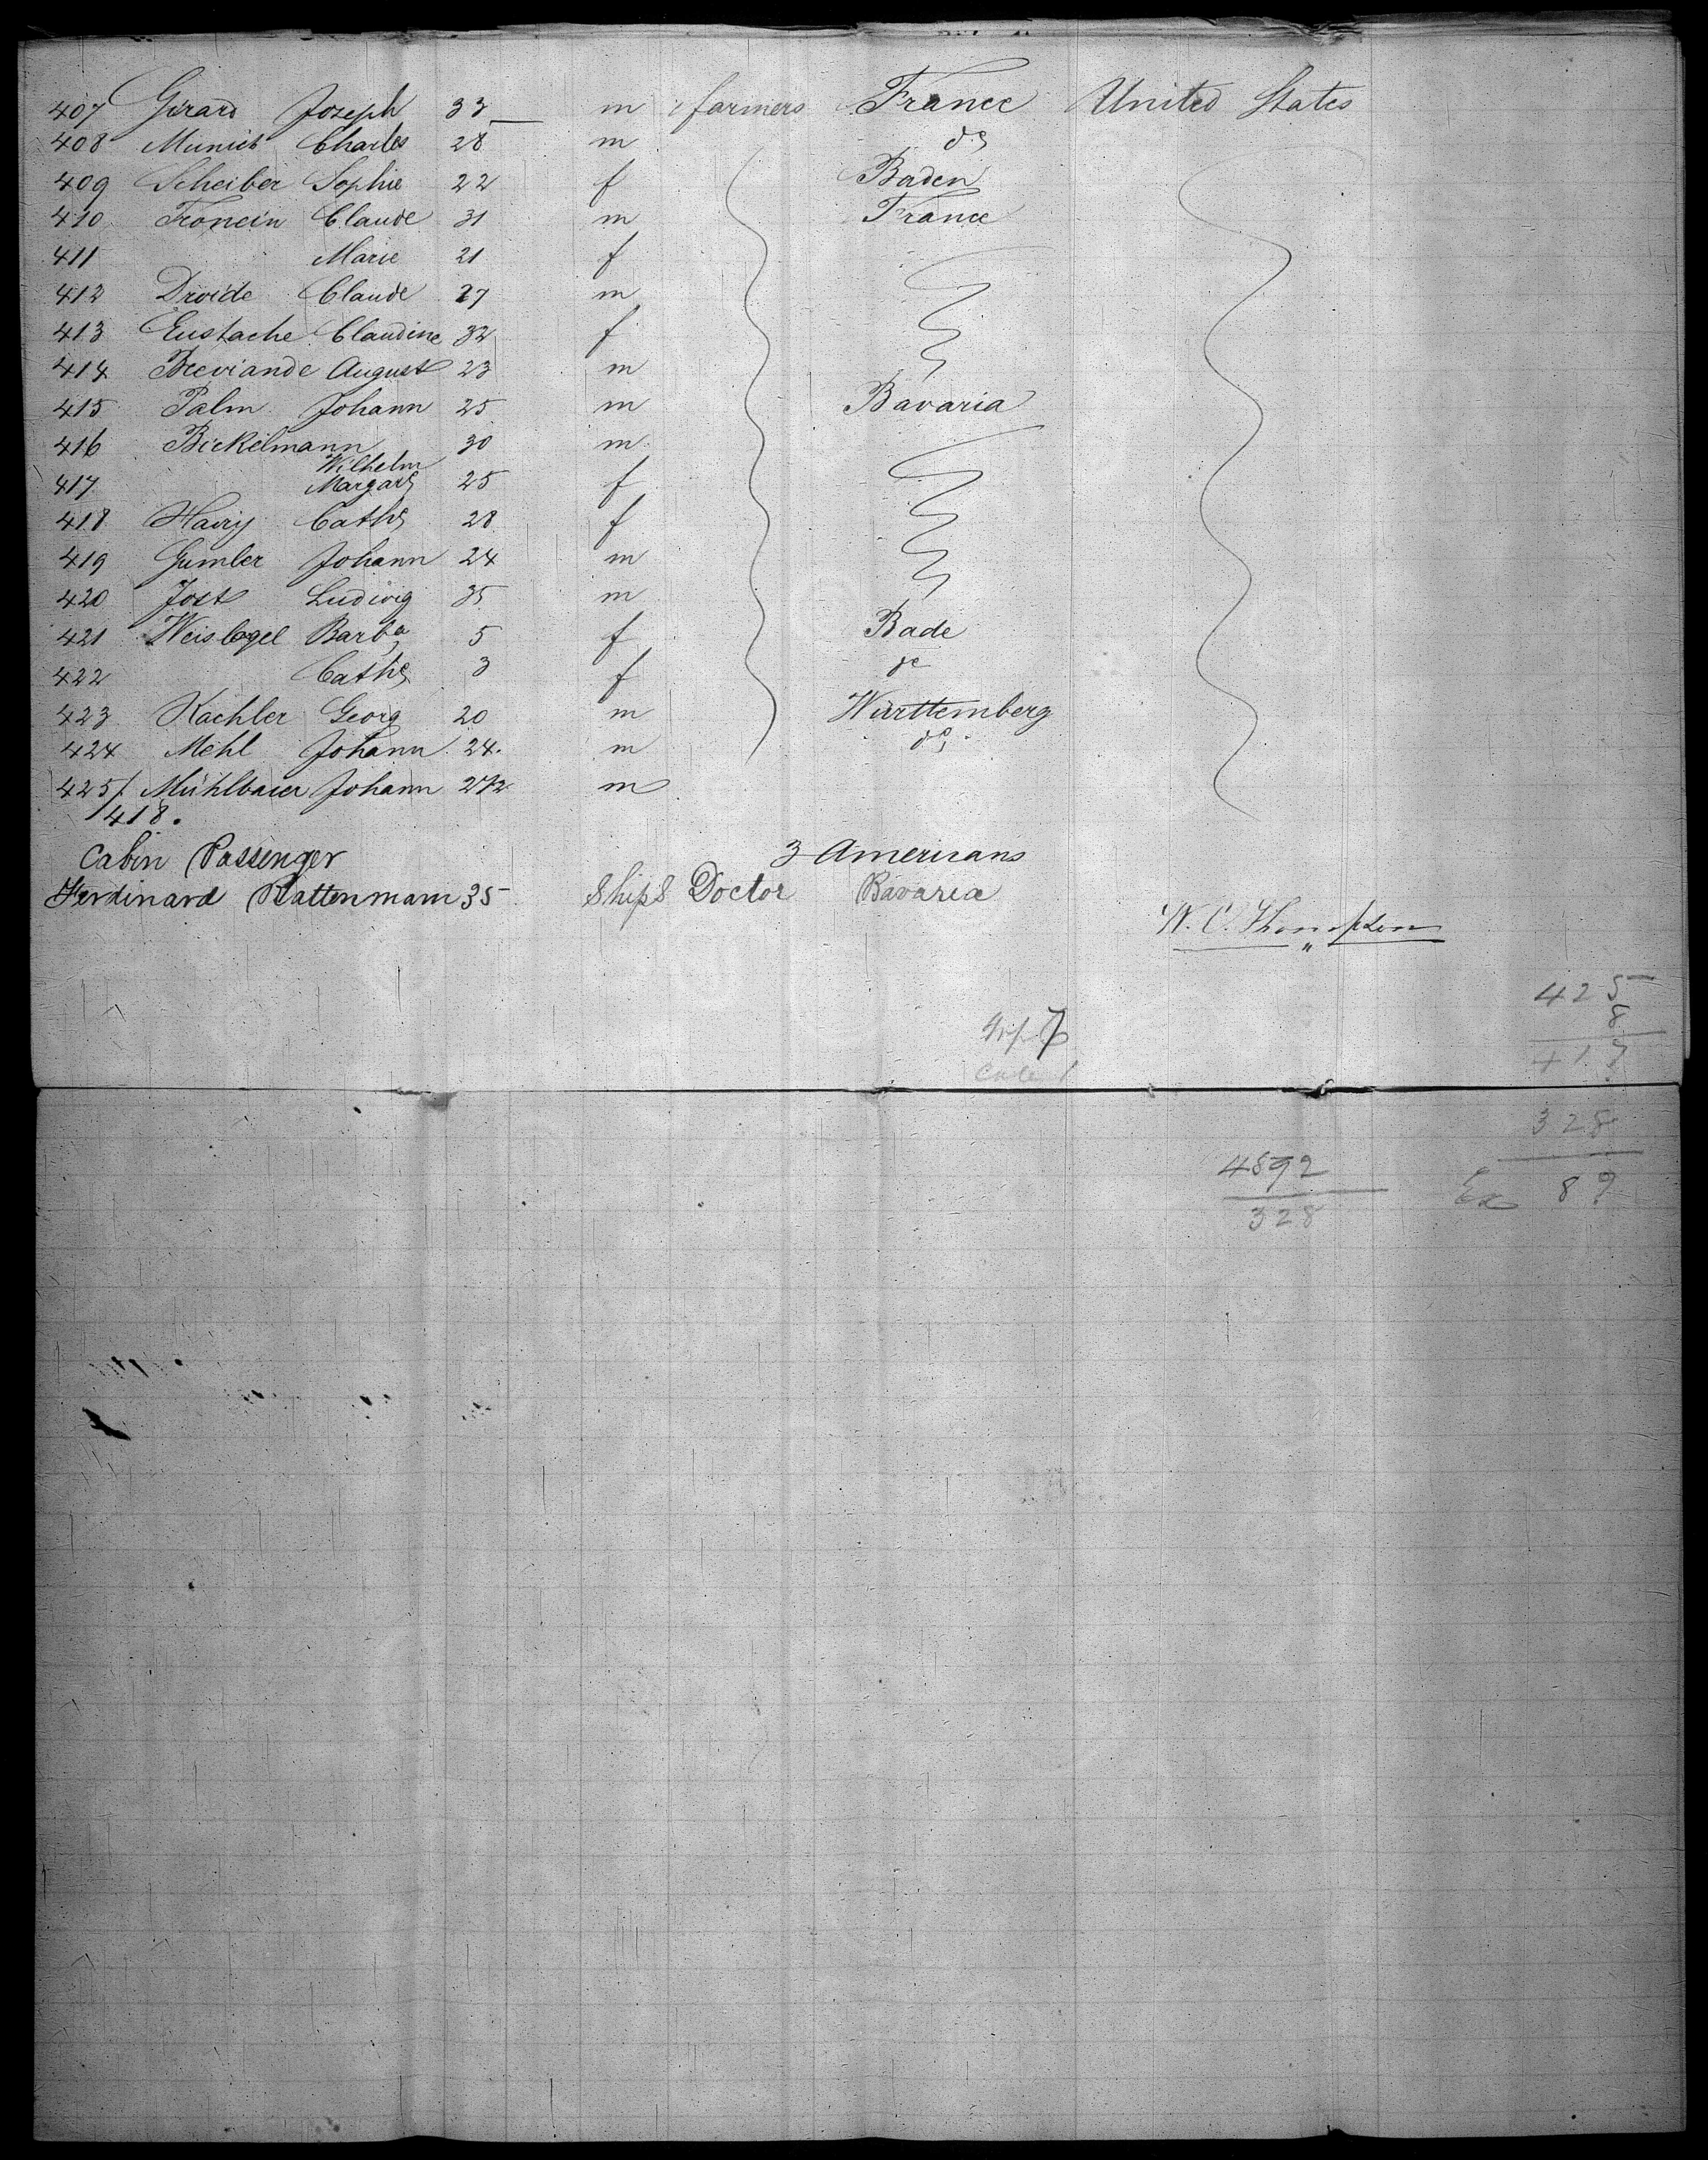 407 Girard Joseph 33 m farmers France United States
408 Munich Charles 28 m do
409 Scheiber Sophie 22 f Baden
410 Froncin Claude 31 m France
411 Marie 21 f
412 Droide Claude 27 m
413 Eustache Claudine 32 f
414 Breviande August 23 m
415 Palm Johann 25 m Bavaria
416 Bickelmann 30 m
Wilhelm
417 Margar 25 f
418 Hairy Cath 28 f
419 Gumler Johann 24 m
420 Jost Ludwig 35 m
421 Weislogel Barba 5 f Bade
422 Cath 3 f do
423 Kachler Georg 20 m Württemberg
424 Mehl Johann 24. m do
425/ Mühlbaier Johann m
418.
Cabin Passenger 3 Americans
Ferdinard Rattenmann 35 Ships Doctor Bavaria
W. C. Thompson
425
8
417
328
4892
328
Ex 89